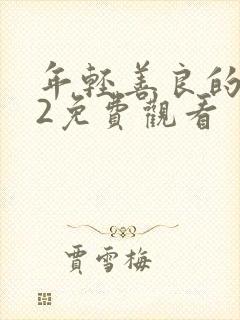 年輕善良的
2免費觀看
賈雪梅